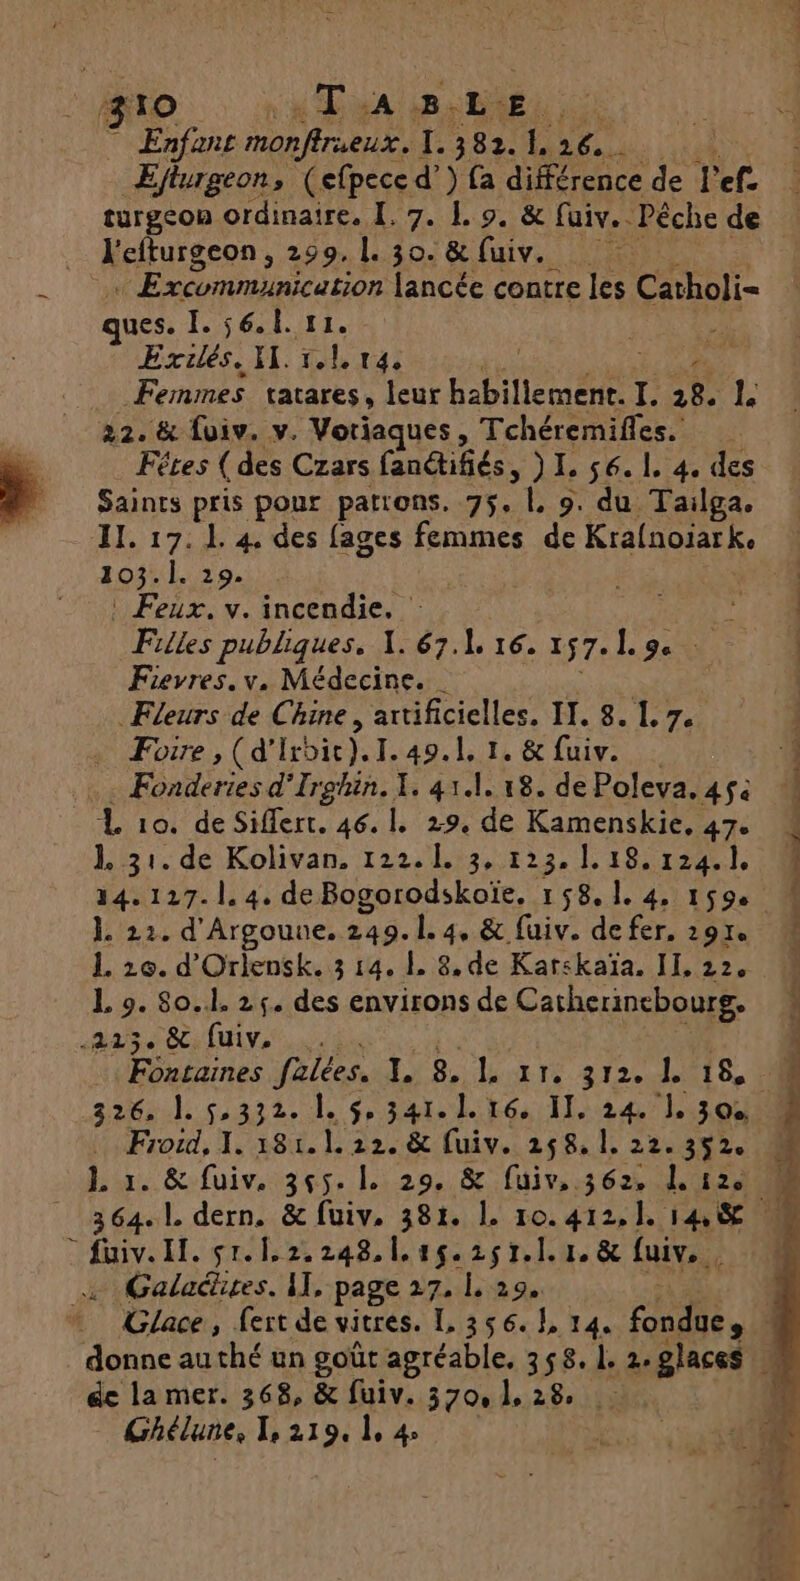 310 TABLE
Enfant monſtrueux. I. 382. l. 26.
Eſturgeon, (eſpece d') ſa différence de l'eſ-
turgeon ordinaire. I. 7. l. 9. & ſuiv. Pêche de
l'eſturgeon, 299. l. 30. & ſuiv.
Excommunication lancée contre les Catholi-
ques. I. 56. l. 11.
Exilés. II. 1. l. 14.
Femmes tatares, leur habillement. I. 28. l.
22. & ſuiv. v. Votiaques, Tchéremiſſes.
Fêtes (des Czars ſanctifiés, ) I. 56. l. 4. des
Saints pris pour patrons. 75. l. 9. du Tailga.
II. 17. l. 4. des ſages femmes de Kraſnoiark.
103. l. 29.
Feux. v. incendie.
Filles publiques. I. 67. l. 16. 157. l. 9.
Fievres. v. Médecine.
Fleurs de Chine, artificielles. II. 8. l. 7.
Foire, (d'Irbit). I. 49. l. 1. & ſuiv.
Fonderies d'Irghin. I. 41. l. 18. de Poleva. 45.
l. 10. de Siſſert. 46. l. 29. de Kamenskie. 47.
l. 31. de Kolivan. 122. l. 3. 123. l. 18. 124. l.
14. 127. l. 4. de Bogorodskoïe. 158. l. 4. 159.
l. 22. d'Argoune. 249. l. 4. & ſuiv. de fer. 291.
l. 20. d'Orlensk. 314. l. 8. de Karskaïa. II. 22.
l. 9. 80. l. 25. des environs de Catherinebourg.
223. & ſuiv.
Fontaines ſalées. I. 8. l. 11. 312. l. 18.
326. l. 5. 332. l. 5. 341. l. 16. II. 24. l. 30.
Froid, I. 181. l. 22. & ſuiv. 258. l. 22. 352.
l. 1. & ſuiv. 355. l. 29. & ſuiv. 362. l. 12.
364. l. dern. & ſuiv. 381. l. 10. 412. l. 14. &
ſuiv. II. 51. l. 2. 248. l. 15. 251. l. 1. & ſuiv.
Galactites. II. page 27. l. 29.
Glace, ſert de vitres. I. 356. l. 14. fondue,
donne au thé un goût agréable. 358. l. 2. glaces
de la mer. 368, & ſuiv. 370. l. 28.
Ghélune, I, 219. l. 4.